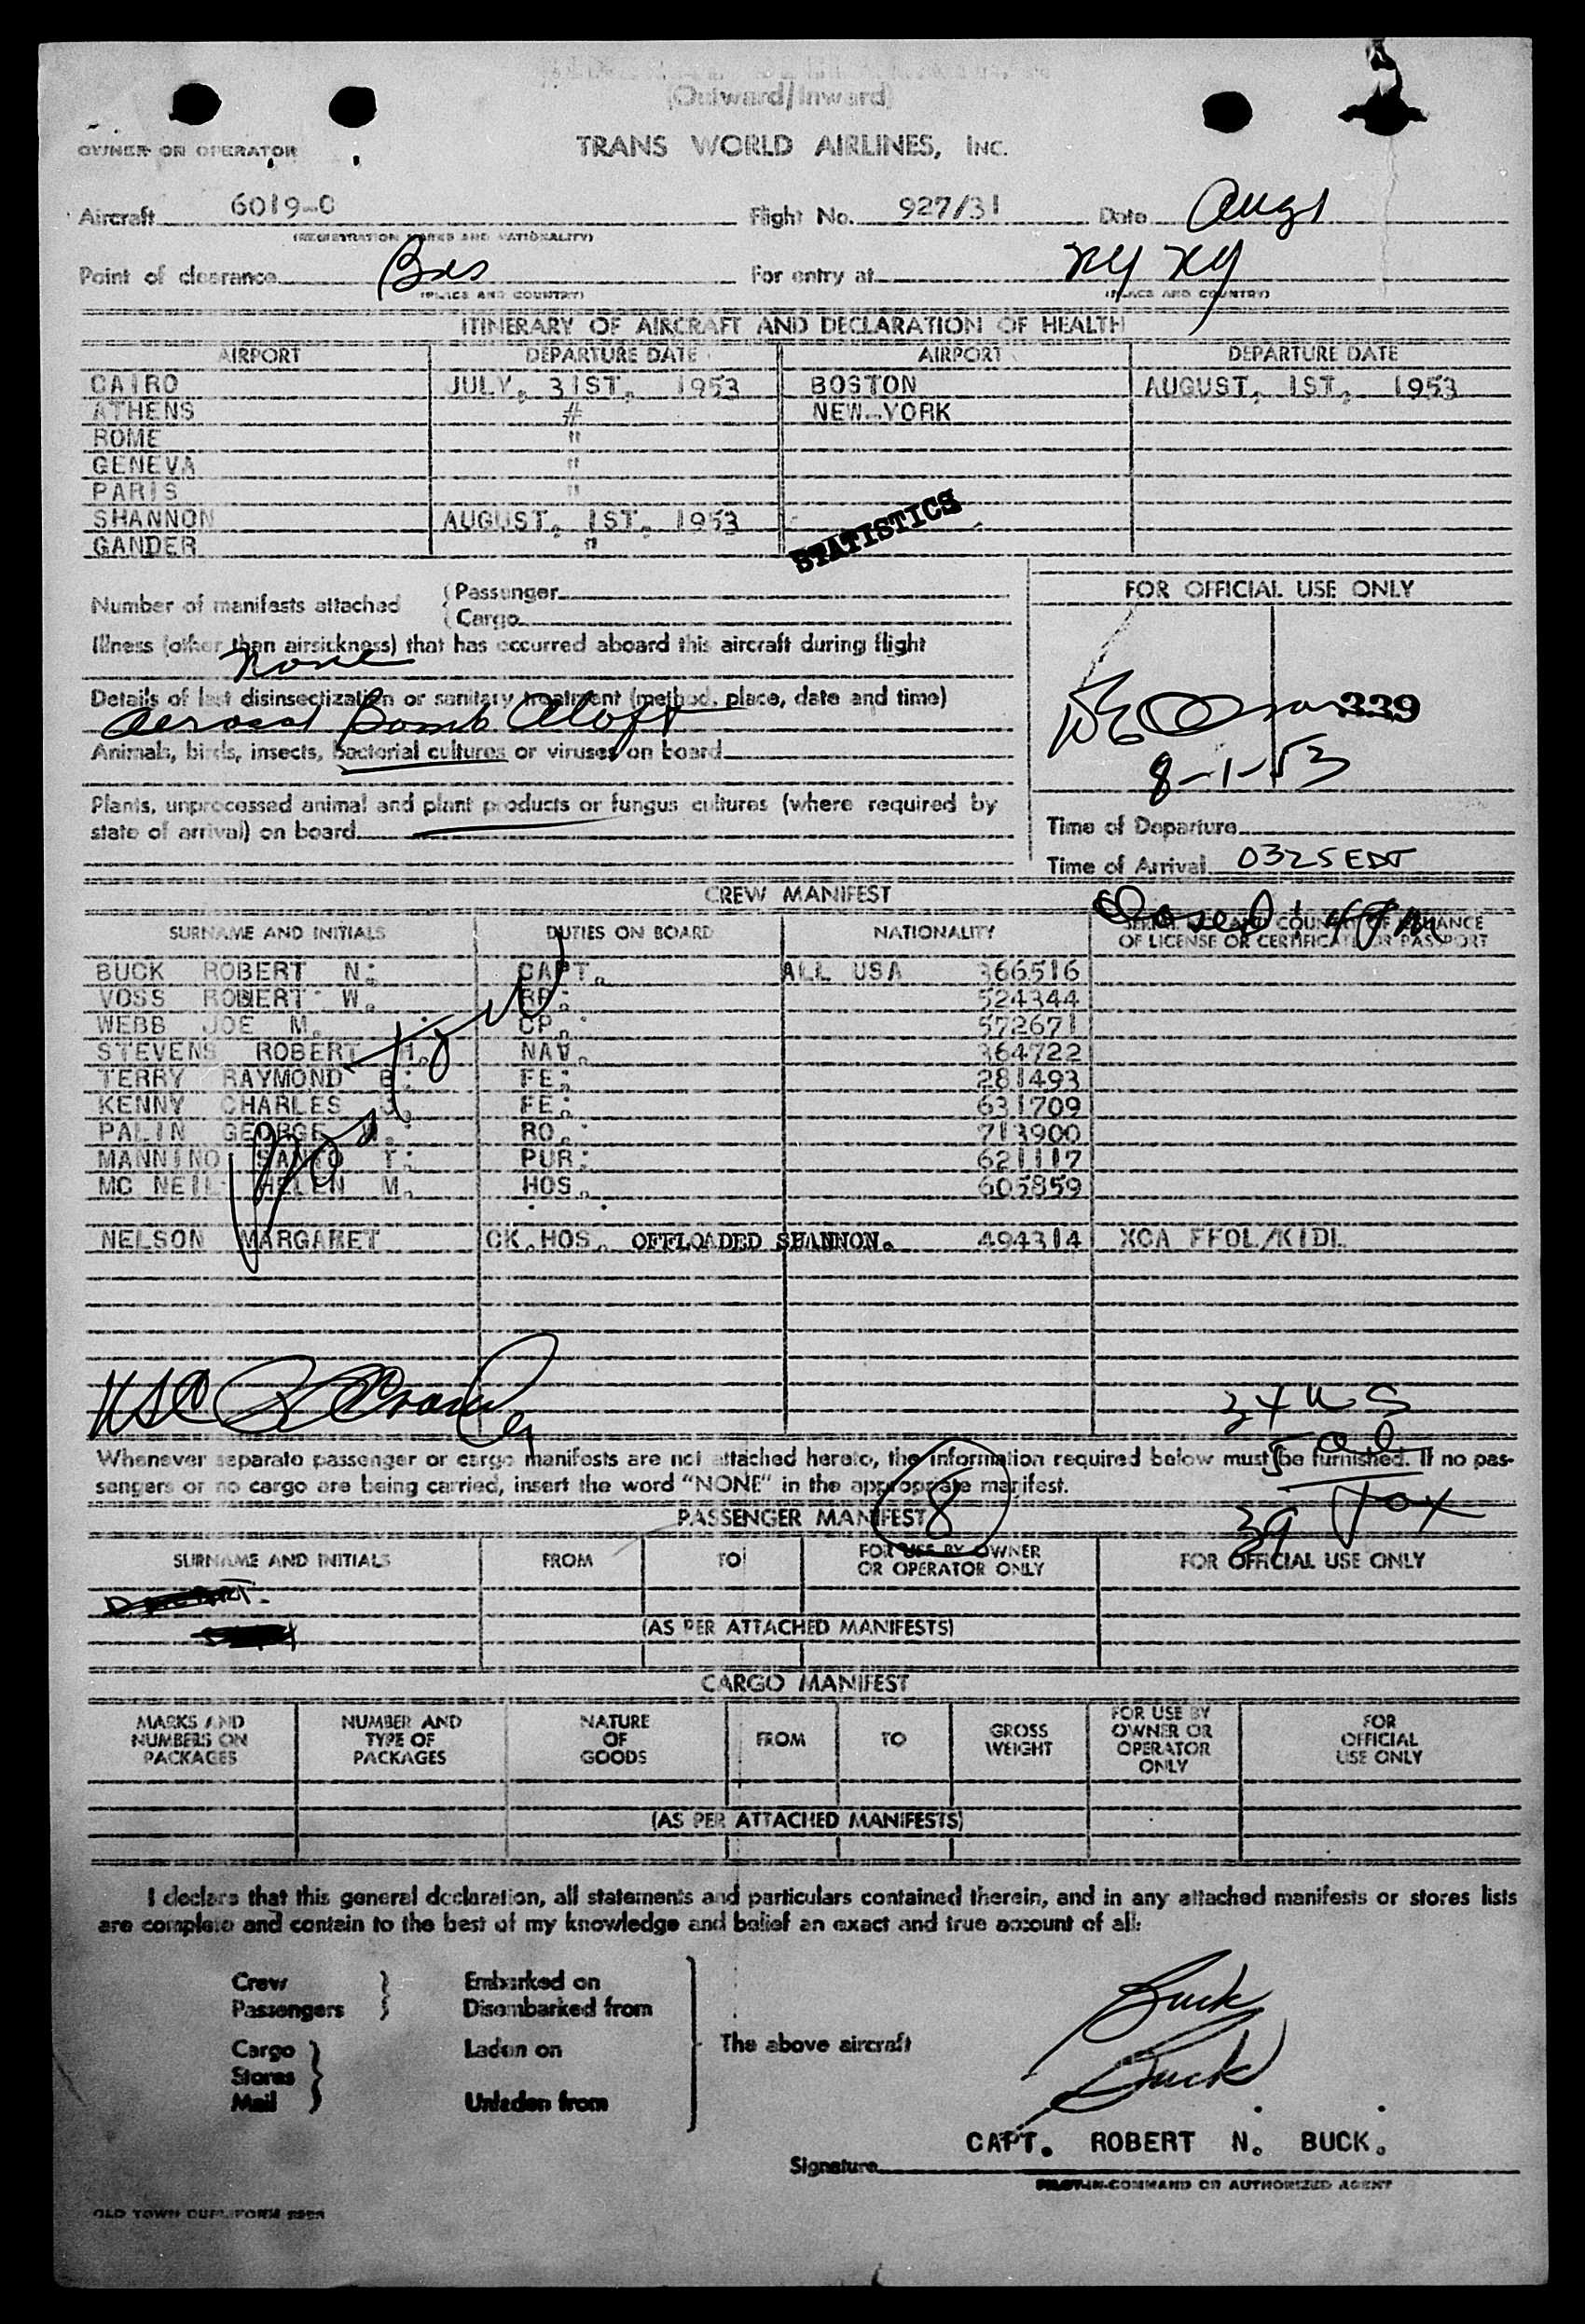 (Outward/Inward)
OWNER OR OPERATOR TRANS WORLD AIRLINES, INC.
Aircraft 6019-C Flight No. 927/31 Date Aug 1
(REGISTRATION MARKS AND NATIONALITY)
Point of clearance Bos For entry at NY NY
(PLACE AND COUNTRY) (PLACE AND COUNTRY)
ITINERARY OF AIRCRAFT AND DECLARATION OF HEALTH
AIRPORT DEPARTURE DATE AIRPORT DEPARTURE DATE
CAIRO JULY, 31ST, 1953 BOSTON AUGUST, 1ST, 1953
ATHENS # NEW-YORK
ROME "
GENEVA "
PARIS "
SHANNON AUGUST, 1ST, 1953
GANDER "
STATISTICS
Number of manifests attached { Passenger
{ Cargo
FOR OFFICIAL USE ONLY
Illness (other than airsickness) that has occurred aboard this aircraft during flight
None
Details of last disinsectization or sanitary treatment (method, place, date and time)
Aerosol Bomb Aloft
339
8-1-53
Animals, birds, insects, bacterial cultures or viruses on board
Plants, unprocessed animal and plant products or fungus cultures (where required by
state of arrival) on board
Time of Departure
Time of Arrival 0325 EDT
CREW MANIFEST
Closed
SURNAME AND INITIALS DUTIES ON BOARD NATIONALITY SERIAL NO. AND COUNTRY OF ISSUANCE
OF LICENSE OR CERTIFICATE OR PASSPORT
BUCK ROBERT N. CAPT. ALL USA 366516
VOSS ROBERT W. RP. 524344
WEBB JOE M. CP. 572671
STEVENS ROBERT H. NAV. 364722
TERRY RAYMOND B. FE. 281493
KENNY CHARLES J. FE. 631709
PALIN GEORGE W. RO. 713900
MANNINO SANTO T. PUR. 621117
MC NEIL HELEN M. HOS. 605859
Boston
NELSON MARGARET CK.HOS. OFFLOADED SHANNON. 494314 XCA FFOL/KIDL
34 US
5 al
39 Tox
Whenever separate passenger or cargo manifests are not attached hereto, the information required below must be furnished. If no pas-
sengers or no cargo are being carried, insert the word "NONE" in the appropriate manifest.
8
PASSENGER MANIFEST
SURNAME AND INITIALS FROM TO FOR USE BY OWNER
OR OPERATOR ONLY FOR OFFICIAL USE ONLY
(AS PER ATTACHED MANIFESTS)
CARGO MANIFEST
MARKS AND
NUMBERS ON
PACKAGES NUMBER AND
TYPE OF
PACKAGES NATURE
OF
GOODS FROM TO GROSS
WEIGHT FOR USE BY
OWNER OR
OPERATOR
ONLY FOR
OFFICIAL
USE ONLY
(AS PER ATTACHED MANIFESTS)
I declare that this general declaration, all statements and particulars contained therein, and in any attached manifests or stores lists
are complete and contain to the best of my knowledge and belief an exact and true account of all:
Crew } Embarked on
Passengers } Disembarked from
Cargo } Laden on
Stores
Mail } Unladen from
The above aircraft
Buck
Buck
CAPT. ROBERT N. BUCK.
Signature
PILOT-IN-COMMAND OR AUTHORIZED AGENT
OLD TOWN DUPLIFORM